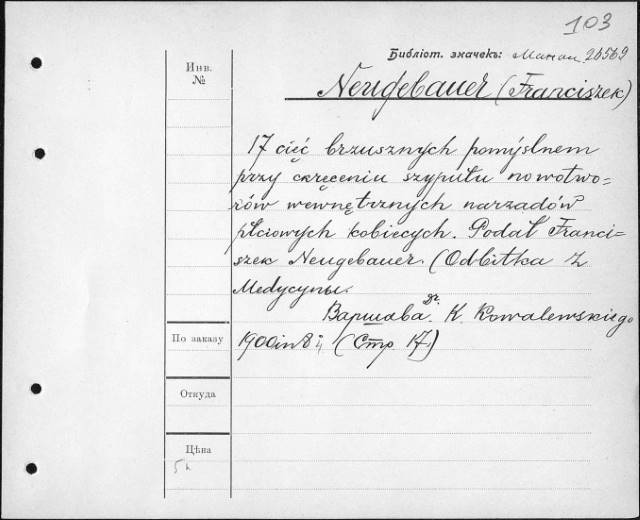 103
Библіот. значекъ: 26569
Инв.
№
Neugebauer (Franciszek)
17 cięć brzusznych pomyślnem
przy skręceniu szypułu nowotwo-
rów wewnętrznych narządów
płciowych kobiecych. Podał Franci-
szek Neugebauer. (Odbitka z
Medycyny.
Варшава. Dr. K. Kowalewskiego
По заказу
1900 in 8 (Стр. 17)
Откуда
Цѣна
5к